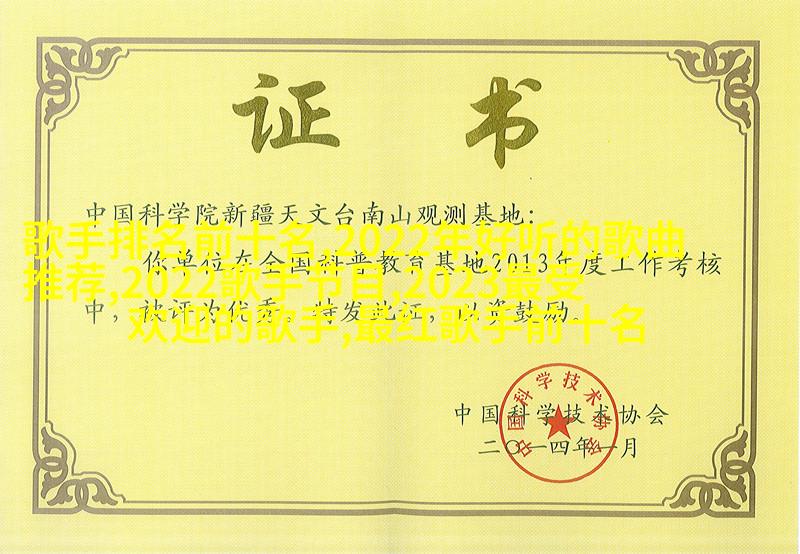 证书
中国科学院新疆天文台南山观测基地:
歌手排名前十名,2022年好听的歌曲
你单位在全国科普教育基地2013年度工作考核
推荐,2022歌手节目,2023最受
中，被评为优秀。特发此证，以资鼓励。
欢迎的歌手,最红歌手前十名
中国科学技术协会
二〇一四年一月
中国科学技术协会